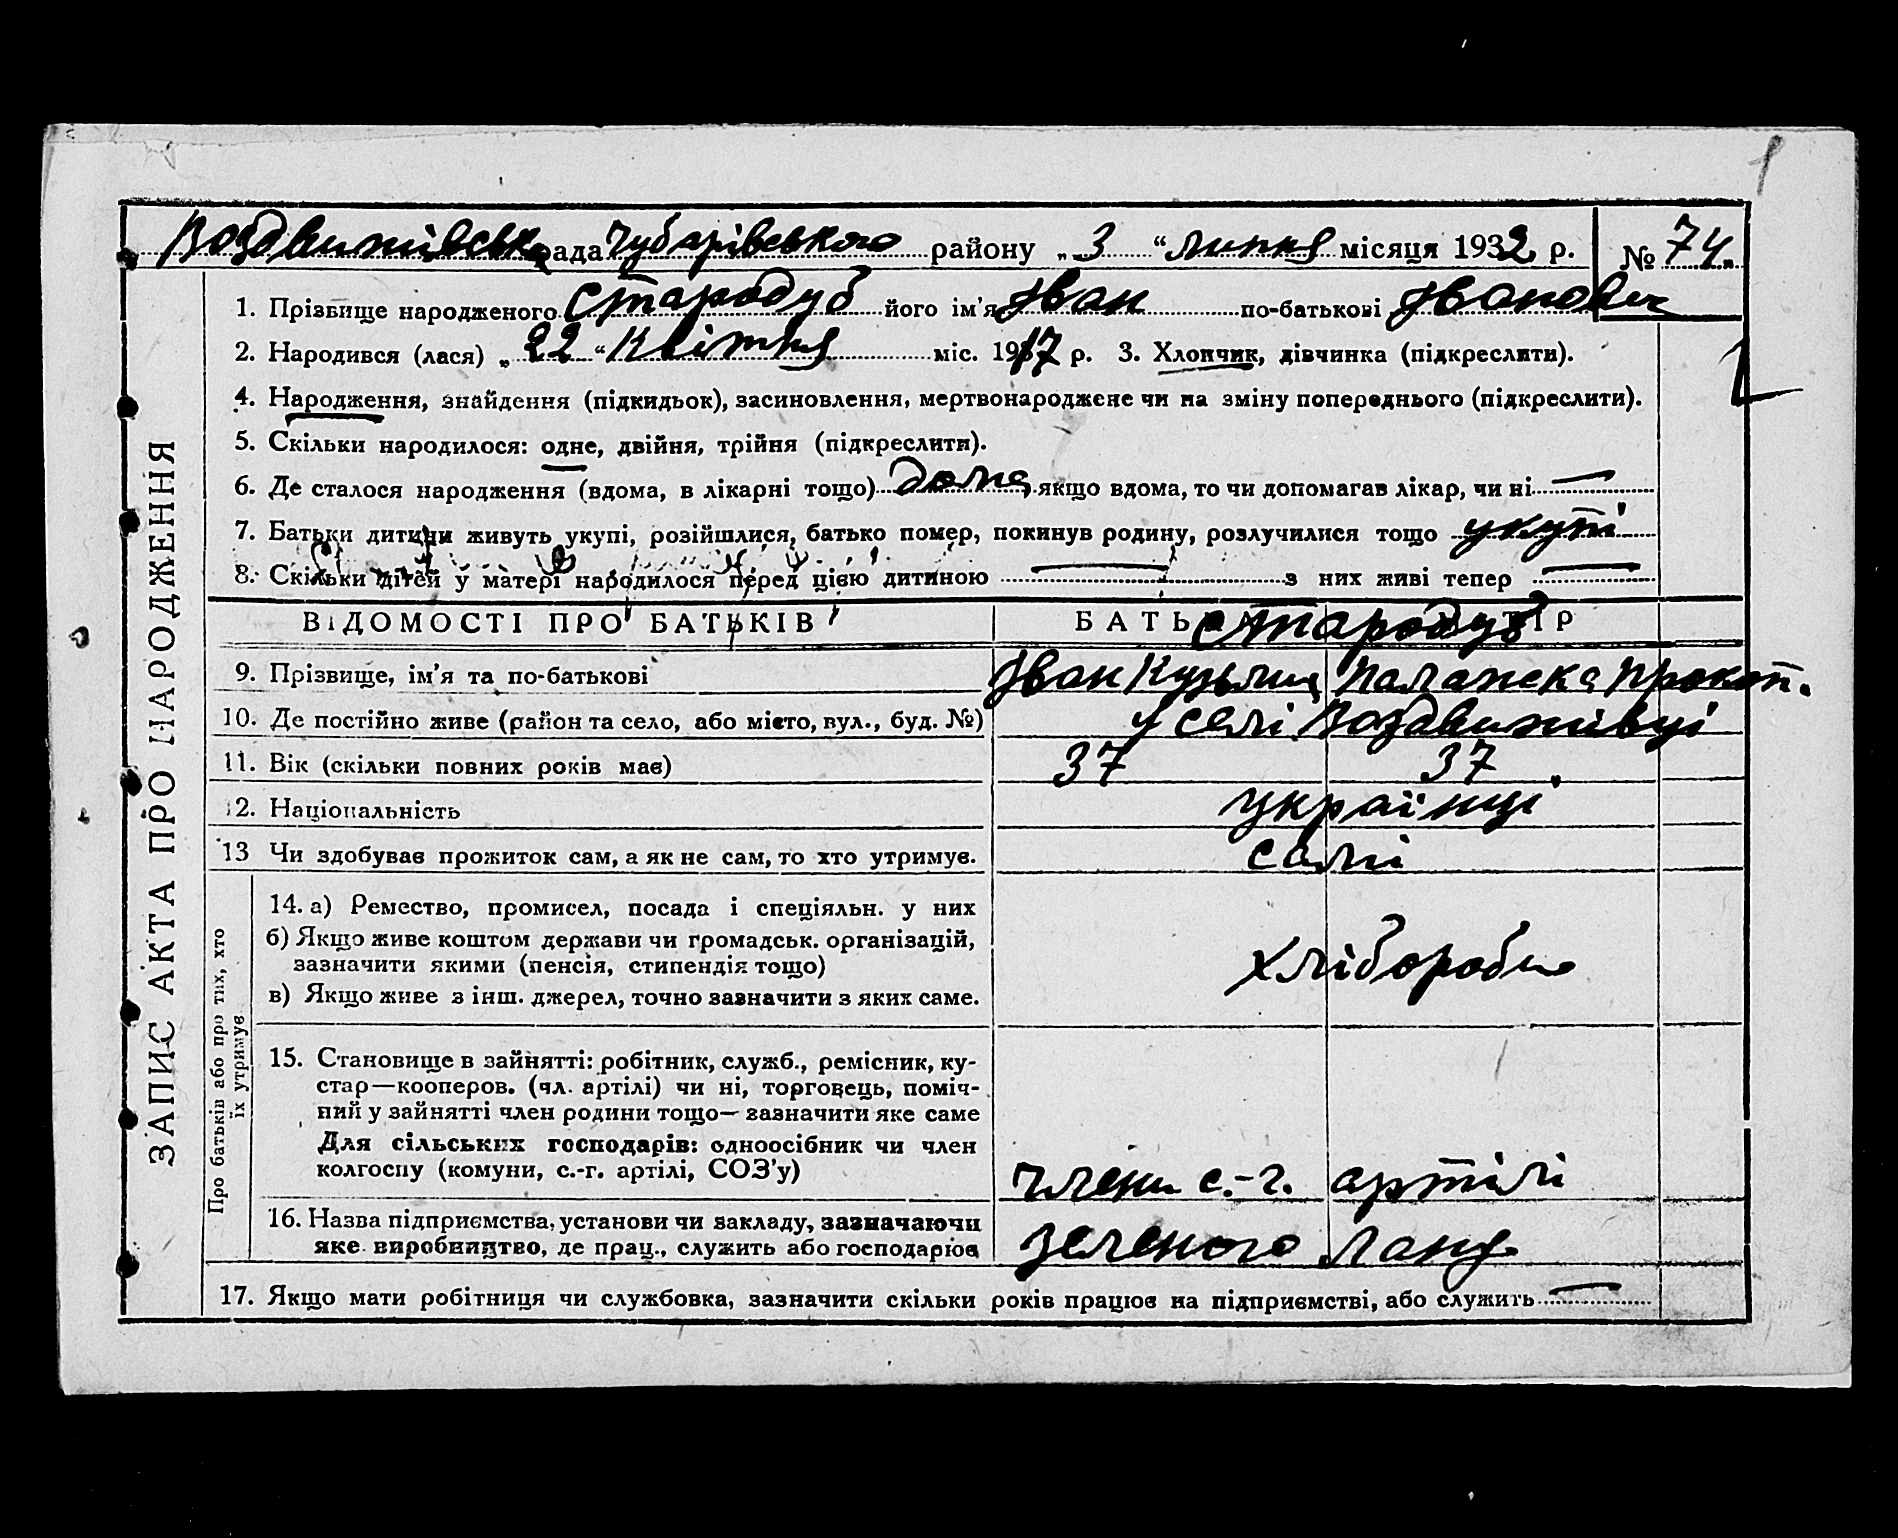 Воздвижівська рада Чубарівського району „ 3 “ липня місяця 1932 р. № 74.
1. Прізвище народженого Стародуб його ім’я Іван по-батькові Іванович
2. Народився (лася) „ 22 “ Квітня міс. 1917 р. 3. Хлопчик, дівчинка (підкреслити).
4. Народження, знайдення (підкидьок), засиновлення, мертвонароджене чи на зміну попереднього (підкреслити).
5. Скільки народилося: одне, двійня, трійня (підкреслити).
6. Де сталося народження (вдома, в лікарні тощо) дома, якщо вдома, то чи допомагав лікар, чи ні —
7. Батьки дитини живуть укупі, розійшлися, батько помер, покинув родину, розлучилися тощо укупі
8. Скільки дітей у матері народилося перед цією дитиною — з них живі тепер —
ВІДОМОСТІ ПРО БАТЬКІВ БАТЬКО МАТІР
Стародуб
9. Прізвище, ім’я та по-батькові Іван Кузьмич Палажка Прокоп.
10. Де постійно живе (район та село, або місто, вул., буд. №) у селі Воздвижівці
11. Вік (скільки повних років має) 37 37
12. Національність українці
13 Чи здобував прожиток сам, а як не сам, то хто утримує. самі
14. а) Ремество, промисел, посада і спеціяльн. у них
б) Якщо живе коштом держави чи громадськ. організацій,
зазначити якими (пенсія, стипендія тощо)
хлібороби
в) Якщо живе з інш. джерел, точно зазначити з яких саме.
15. Становище в зайнятті: робітник, служб., ремісник, ку-
стар—кооперов. (чл. артілі) чи ні, торговець, поміч-
ний у зайнятті член родини тощо— зазначити яке саме
Для сільських господарів: одноосібник чи член
колгоспу (комуни, с.-г. артілі, СОЗ’у) члени с.-г. артілі
16. Назва підприємства, установи чи закладу, зазначаючи
яке виробництво, де прац., служить або господарює зеленого лану
17. Якщо мати робітниця чи службовка, зазначити скільки років працює на підприємстві, або служить —
ЗАПИС АКТА ПРО НАРОДЖЕННЯ
Про батьків або про тих, хто
їх утримує